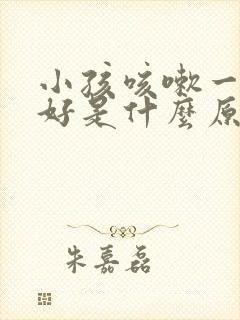 小孩咳嗽一
好是什麼原
朱嘉磊